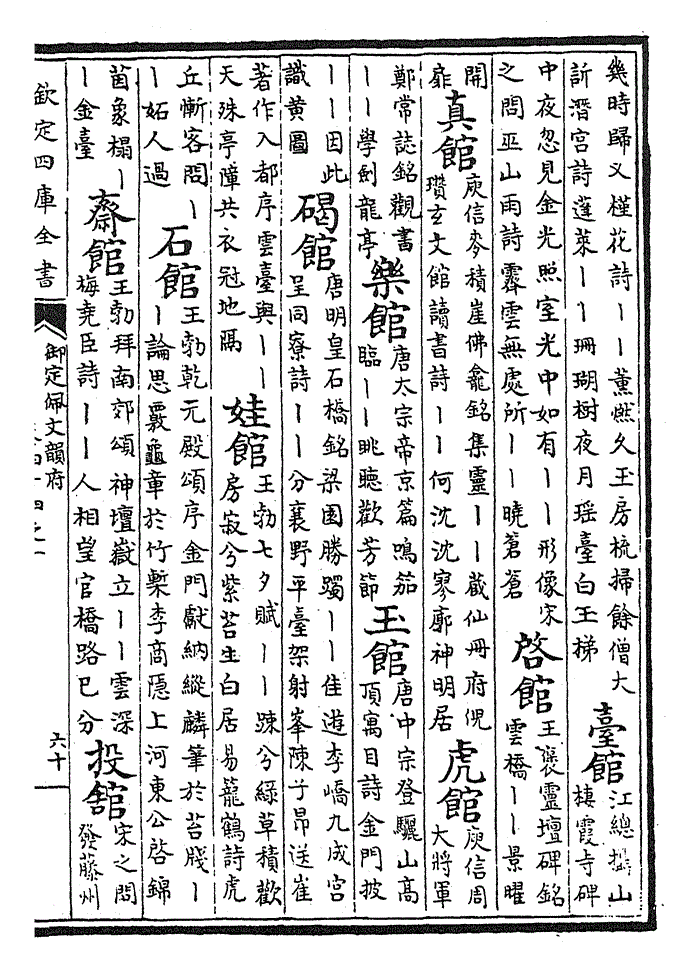 幾時歸又槿花詩｜｜薰燃久玉房梳掃餘僧大
訢潛宮詩蓬萊｜｜珊瑚樹夜月瑶臺白玉梯
臺館
江總攝山
棲霞寺碑
中夜忽見金光照室光中如有｜｜形像宋
之問巫山雨詩霽雲無處所｜｜曉蒼蒼
啓館
王褒靈壇碑銘
雲橋｜｜景曜
開
扉
真館
庾信麥積崖佛龕銘集靈｜｜藏仙冊府倪
瓚玄文館讀書詩｜｜何沈沈寥廓神明居
虎館
庾信周
大將軍
鄭常誌銘觀書
｜｜學劍龍亭
樂館
唐太宗帝京篇鳴笳
臨｜｜眺聽歡芳節
玉館
唐中宗登驪山高
頂寓目詩金門披
｜｜因此
識黄圖
碣館
唐明皇石橋銘梁園勝躅｜｜佳遊李嶠九成宮
呈同寮詩｜｜分襄野平臺架射峯陳子昂送崔
著作入都序雲臺與｜｜
天殊亭障共衣冠地隅
娃館
王勃七夕賦｜｜疎兮綠草積歡
房寂兮紫苔生白居易籠鶴詩虎
丘慚客問｜
｜妬人過
石館
王勃乾元殿頌序金門獻納縱麟筆於苔牋｜
｜論思覈龜章於竹槧李商隱上河東公啓錦
茵象榻｜
｜金臺
齋館
王勃拜南郊頌神壇嶽立｜｜雲深
梅堯臣詩｜｜人相望官橋路已分
投舘
宋之問
發藤州
欽定四庫全書
御定佩文韻府
卷四十四之一
六十